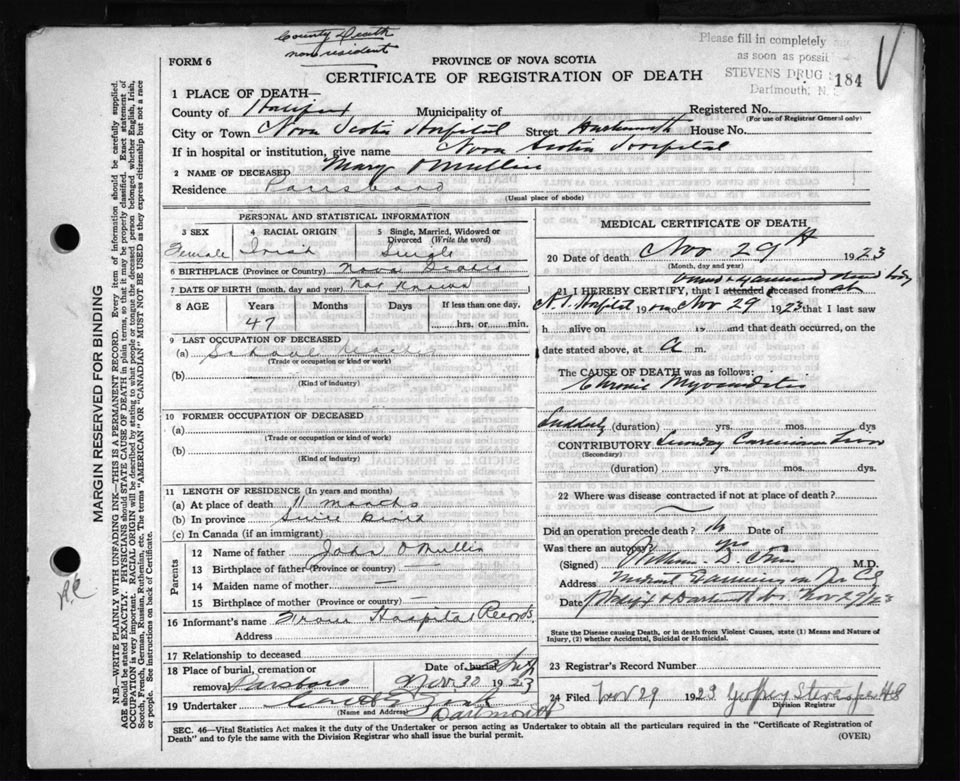 County Death
non resident
Please fill in completely
as soon as possi
STEVENS DRUG
184
Dartmouth, N.
FORM 6
PROVINCE OF NOVA SCOTIA
CERTIFICATE OF REGISTRATION OF DEATH
1 PLACE OF DEATH—
County of Halifax Municipality of Registered No.
(For use of Registrar General only)
City or Town Nova Scotia Hospital Street Dartmouth House No.
If in hospital or institution, give name Nova Scotia Hospital
2 NAME OF DECEASED Mary O'Mullin
Residence Parrsboro
(Usual place of abode)
PERSONAL AND STATISTICAL INFORMATION
3 SEX 4 RACIAL ORIGIN 5 Single, Married, Widowed or Divorced (Write the word)
Female Irish Single
6 BIRTHPLACE (Province or Country) Nova Scotia
7 DATE OF BIRTH (month, day and year) Not Known
8 AGE Years Months Days If less than one day,
47 hrs. or min.
9 LAST OCCUPATION OF DECEASED
(a) School
(Trade or occupation or kind of work)
(b)
(Kind of industry)
10 FORMER OCCUPATION OF DECEASED
(a)
(Trade or occupation or kind of work)
(b)
(Kind of industry)
11 LENGTH OF RESIDENCE (In years and months)
(a) At place of death 11 months
(b) In province Since birth
(c) In Canada (if an immigrant)
Parents
12 Name of father John O'Mullin
13 Birthplace of father (Province or country) —
14 Maiden name of mother —
15 Birthplace of mother (Province or country) —
16 Informant's name From Hospital Records
Address
17 Relationship to deceased
18 Place of burial, cremation or removal Parsboro Date of burial Nov 30 1923
19 Undertaker
(Name and Address) Dartmouth
MEDICAL CERTIFICATE OF DEATH
20 Date of death Nov 29th 1923
(Month, day and year)
21 I HEREBY CERTIFY, that I attended deceased from
viewed & examined dead body at
N.S. Hospital 19 on Nov 29 1923 that I last saw
h alive on 19 and that death occurred, on the
date stated above, at a m.
The CAUSE OF DEATH was as follows:
Chronic Myocarditis
Suddenly (duration) yrs. mos. dys
CONTRIBUTORY
(Secondary)
(duration) yrs. mos. dys.
22 Where was disease contracted if not at place of death?
Did an operation precede death? No Date of
Was there an autopsy? yes
(Signed) William D. M.D.
Address Medical Examiner
Date Halifax & Dartmouth Nov 29/23
State the Disease causing Death, or in death from Violent Causes, state (1) Means and Nature of Injury, (2) whether Accidental, Suicidal or Homicidal.
23 Registrar's Record Number
24 Filed Nov 29 1923
Division Registrar
SEC. 46—Vital Statistics Act makes it the duty of the Undertaker or person acting as Undertaker to obtain all the particulars required in the "Certificate of Registration of
Death" and to fyle the same with the Division Registrar who shall issue the burial permit.
(OVER)
MARGIN RESERVED FOR BINDING
N.B.—WRITE PLAINLY WITH UNFADING INK—THIS IS A PERMANENT RECORD. Every item of information should be carefully supplied.
AGE should be stated EXACTLY. PHYSICIANS should STATE CAUSE OF DEATH in plain terms, so that it may be properly classified. Exact statement of
OCCUPATION is very important. RACIAL ORIGIN will be described by stating to what people or tongue the deceased person belonged whether English, Irish,
Scotch, French, German, Russian, Ruthenian, etc. The terms "AMERICAN" or "CANADIAN" MUST NOT BE USED as they express citizenship but not a race
or people. See instructions on back of Certificate.